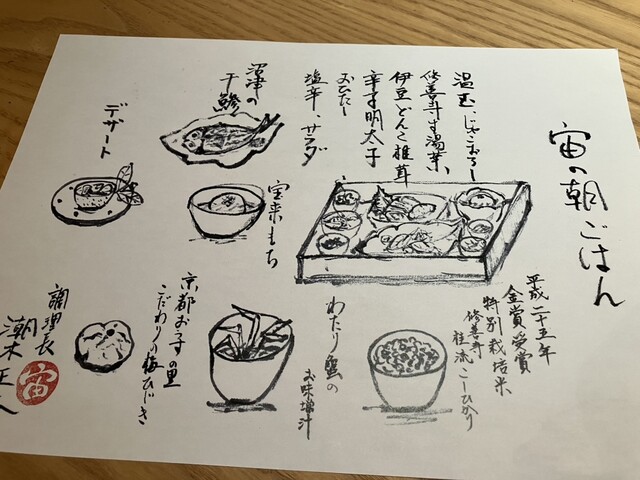 宙の朝ごはん
温玉、じゃこおろし
修善寺生湯葉、
伊豆どんこ椎茸
辛子明太子
おひたし
塩辛、サラダ
沼津の
干鯵
デザート
宝来もち
平成二十五年
金賞受賞
特別栽培米
修善寺
桂流こしひかり
わたり蟹の
お味噌汁
京都おうすの里
こだわりの梅ひじき
調理長
宙